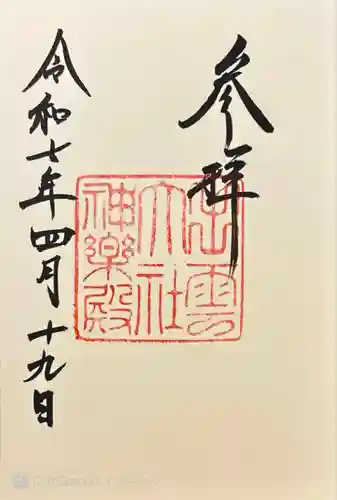 参拜
出雲
大社
神樂殿
令和七年四月十九日